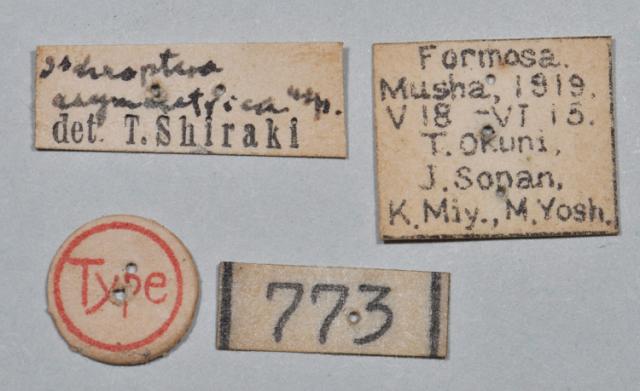 Ischeoptera
asymmetrica n.sp.
det. T. Shiraki
Formosa.
Musha, 1919.
V 18 -VI 15.
T. Okuni,
J. Sonan,
K. Miy., M. Yosh.
Type
773